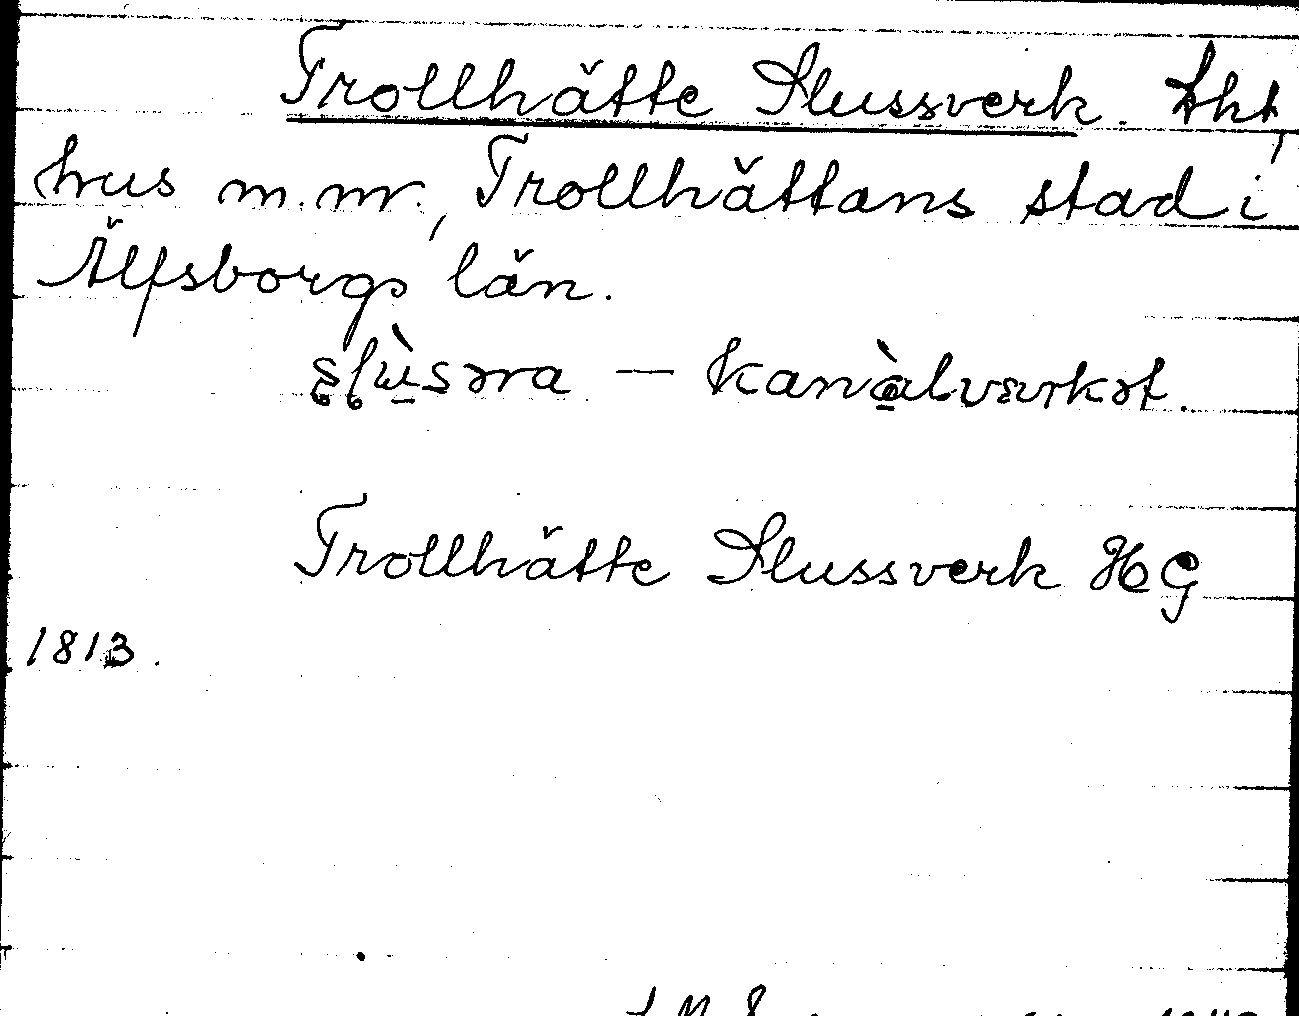 Trollhätte Slussverk. Lht,
hus m.m., Trollhättans stad i
Älfsborgs län.
slùsəra — kanàlværkət.
Trollhätte Slussverk HG
1813.